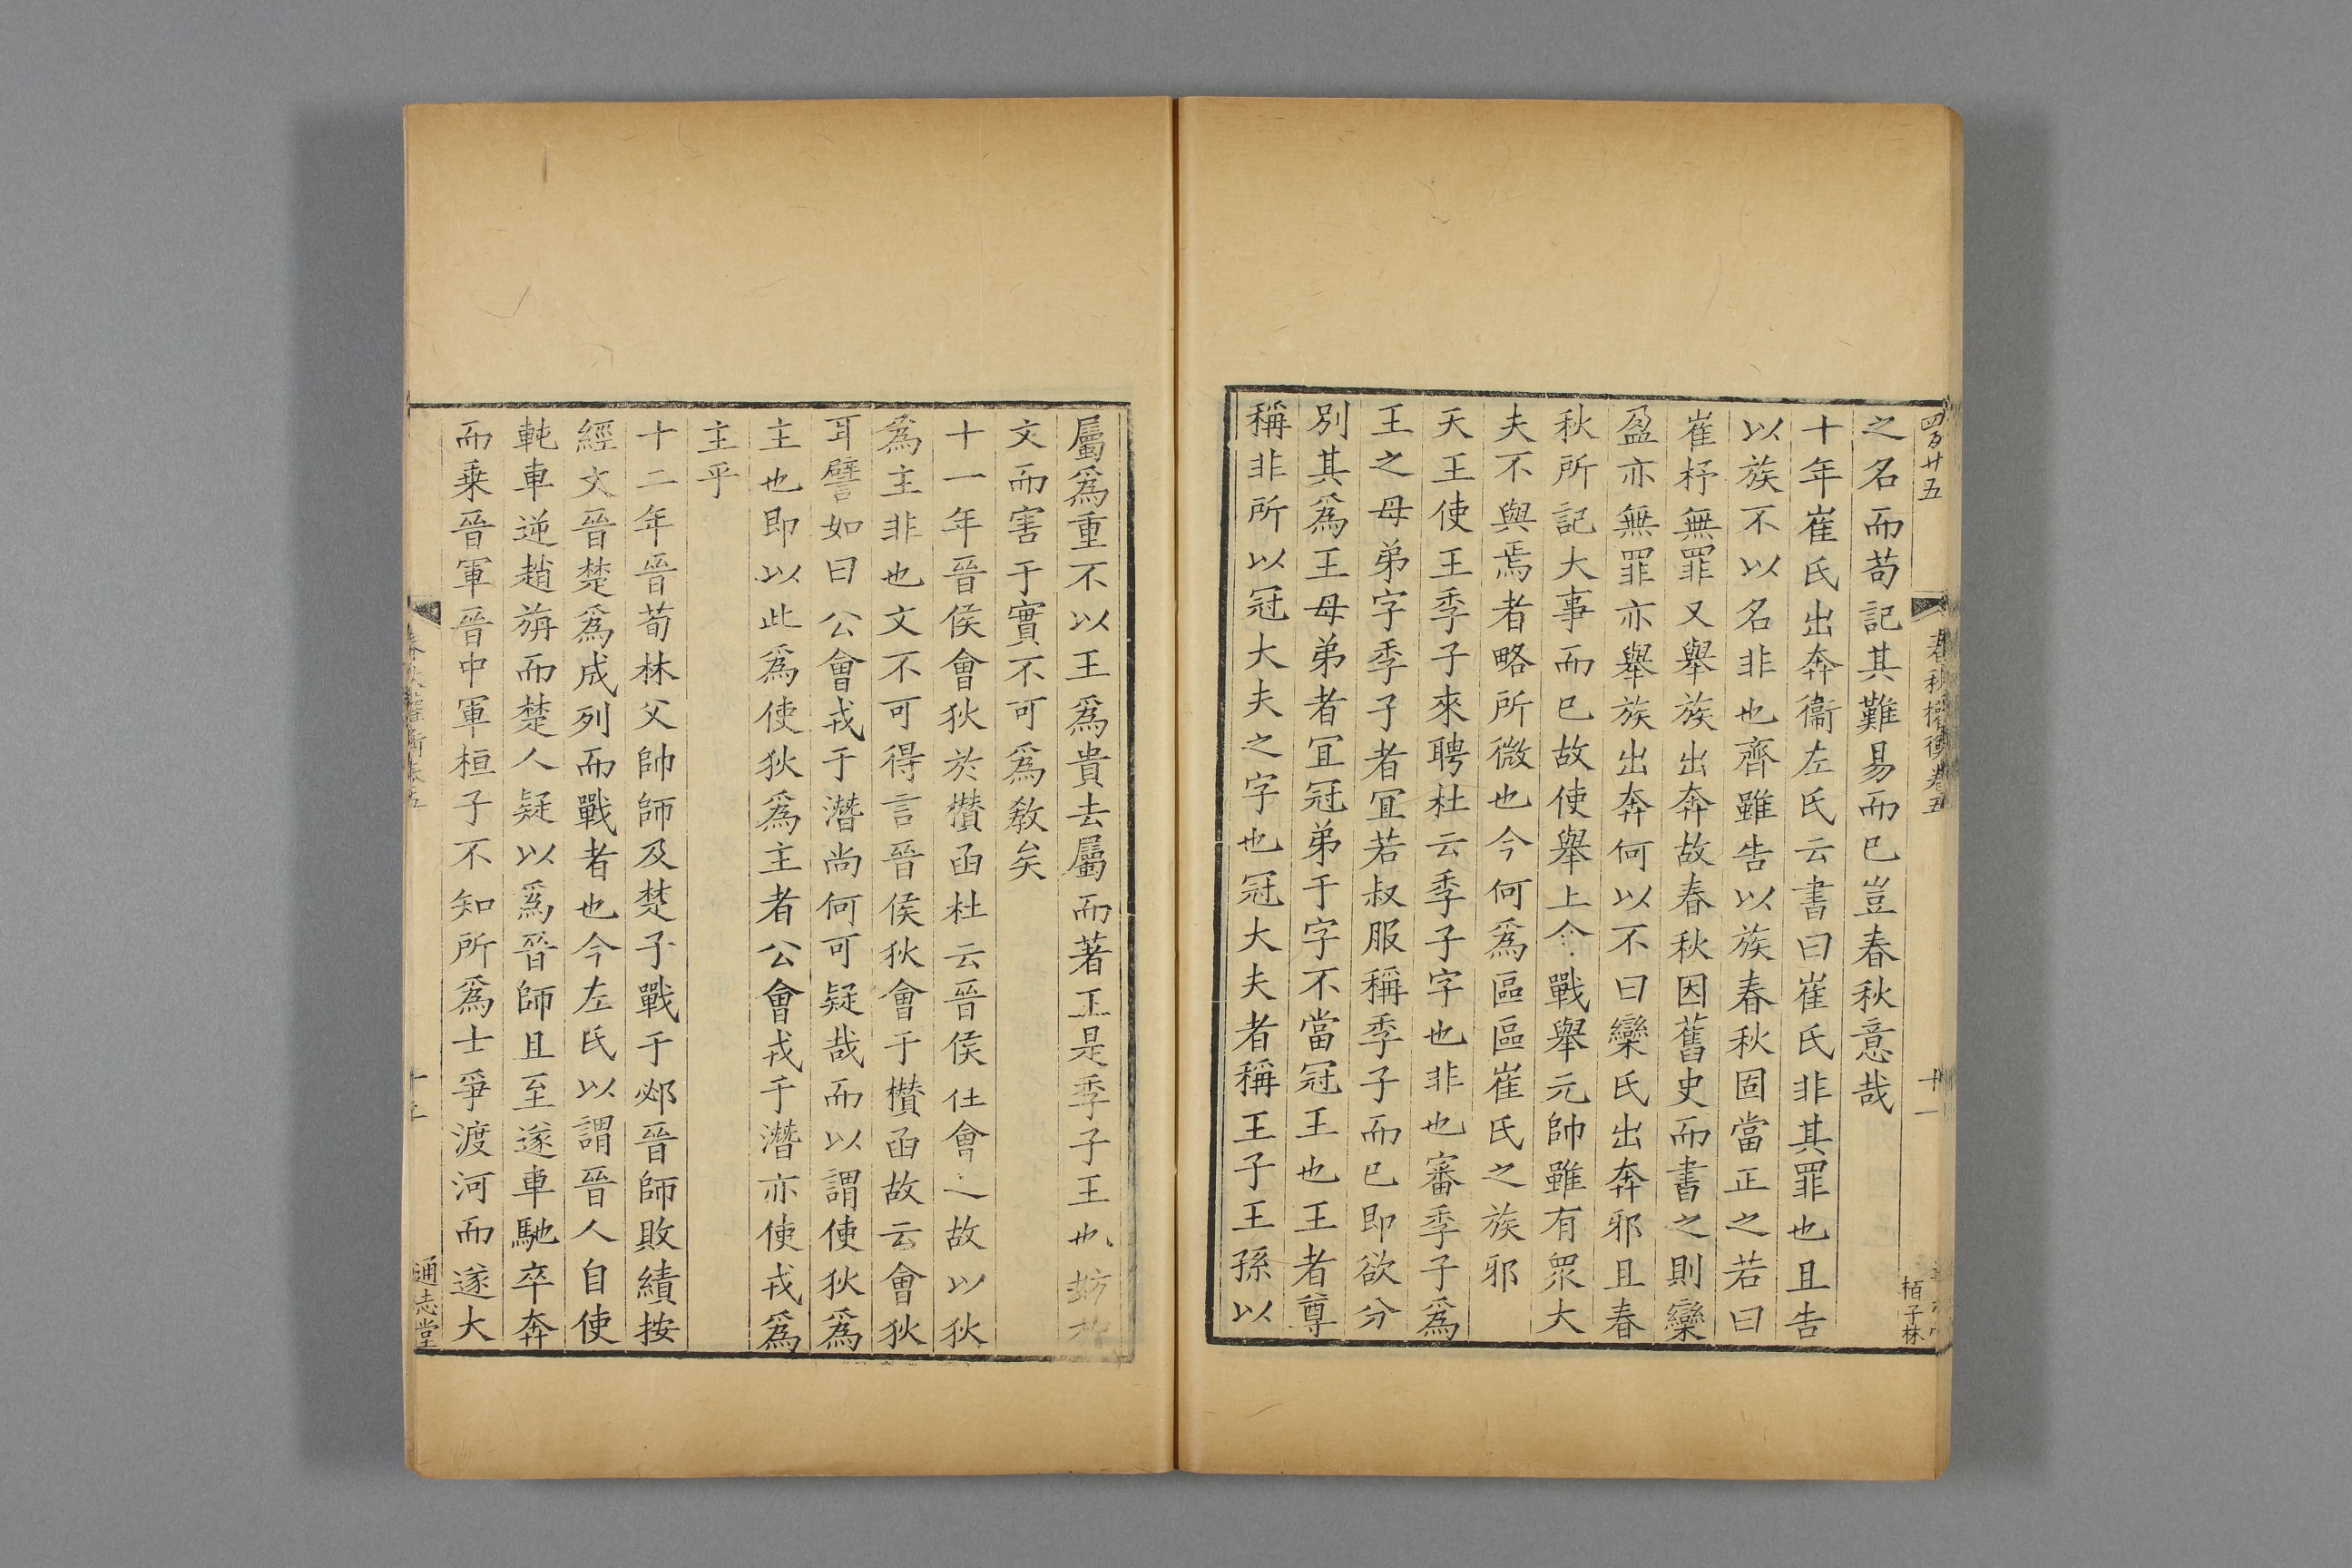 四百廿五
春秋權衡卷五
十一
栢子林
之名而苟記其難易而已豈春秋意哉
十年崔氏出奔衞左氏云書曰崔氏非其罪也且告
以族不以名非也齊雖告以族春秋固當正之若曰
崔杼無罪又舉族出奔故春秋因舊史而書之則欒
盈亦無罪亦舉族出奔何以不曰欒氏出奔邪且春
秋所記大事而已故使舉上令戰舉元帥雖有眾大
夫不與焉者略所微也今何爲區區崔氏之族邪
天王使王季子來聘杜云季子字也非也審季子爲
王之母弟字季子者冝若叔服稱季子而已即欲分
別其爲王母弟者冝冠弟于字不當冠王也王者尊
稱非所以冠大夫之字也冠大夫者稱王子王孫以
屬爲重不以王爲貴去屬而著王是季子王也妨
文而害于實不可爲敎矣
十一年晉侯會狄於欑函杜云晉侯往會之故以狄
爲主非也文不可得言晉侯狄會于欑函故云會狄
耳譬如曰公會戎于潛尚何可疑哉而以謂使狄爲
主也即以此爲使狄爲主者公會戎于潛亦使戎爲
主乎
十二年晉荀林父帥師及楚子戰于邲晉師敗績按
經文晉楚爲成列而戰者也今左氏以謂晉人自使
軘車逆趙旃而楚人疑以爲晉師且至遂車馳卒奔
而乗晉軍晉中軍桓子不知所爲士爭渡河而遂大
春秋權衡卷五
通志堂